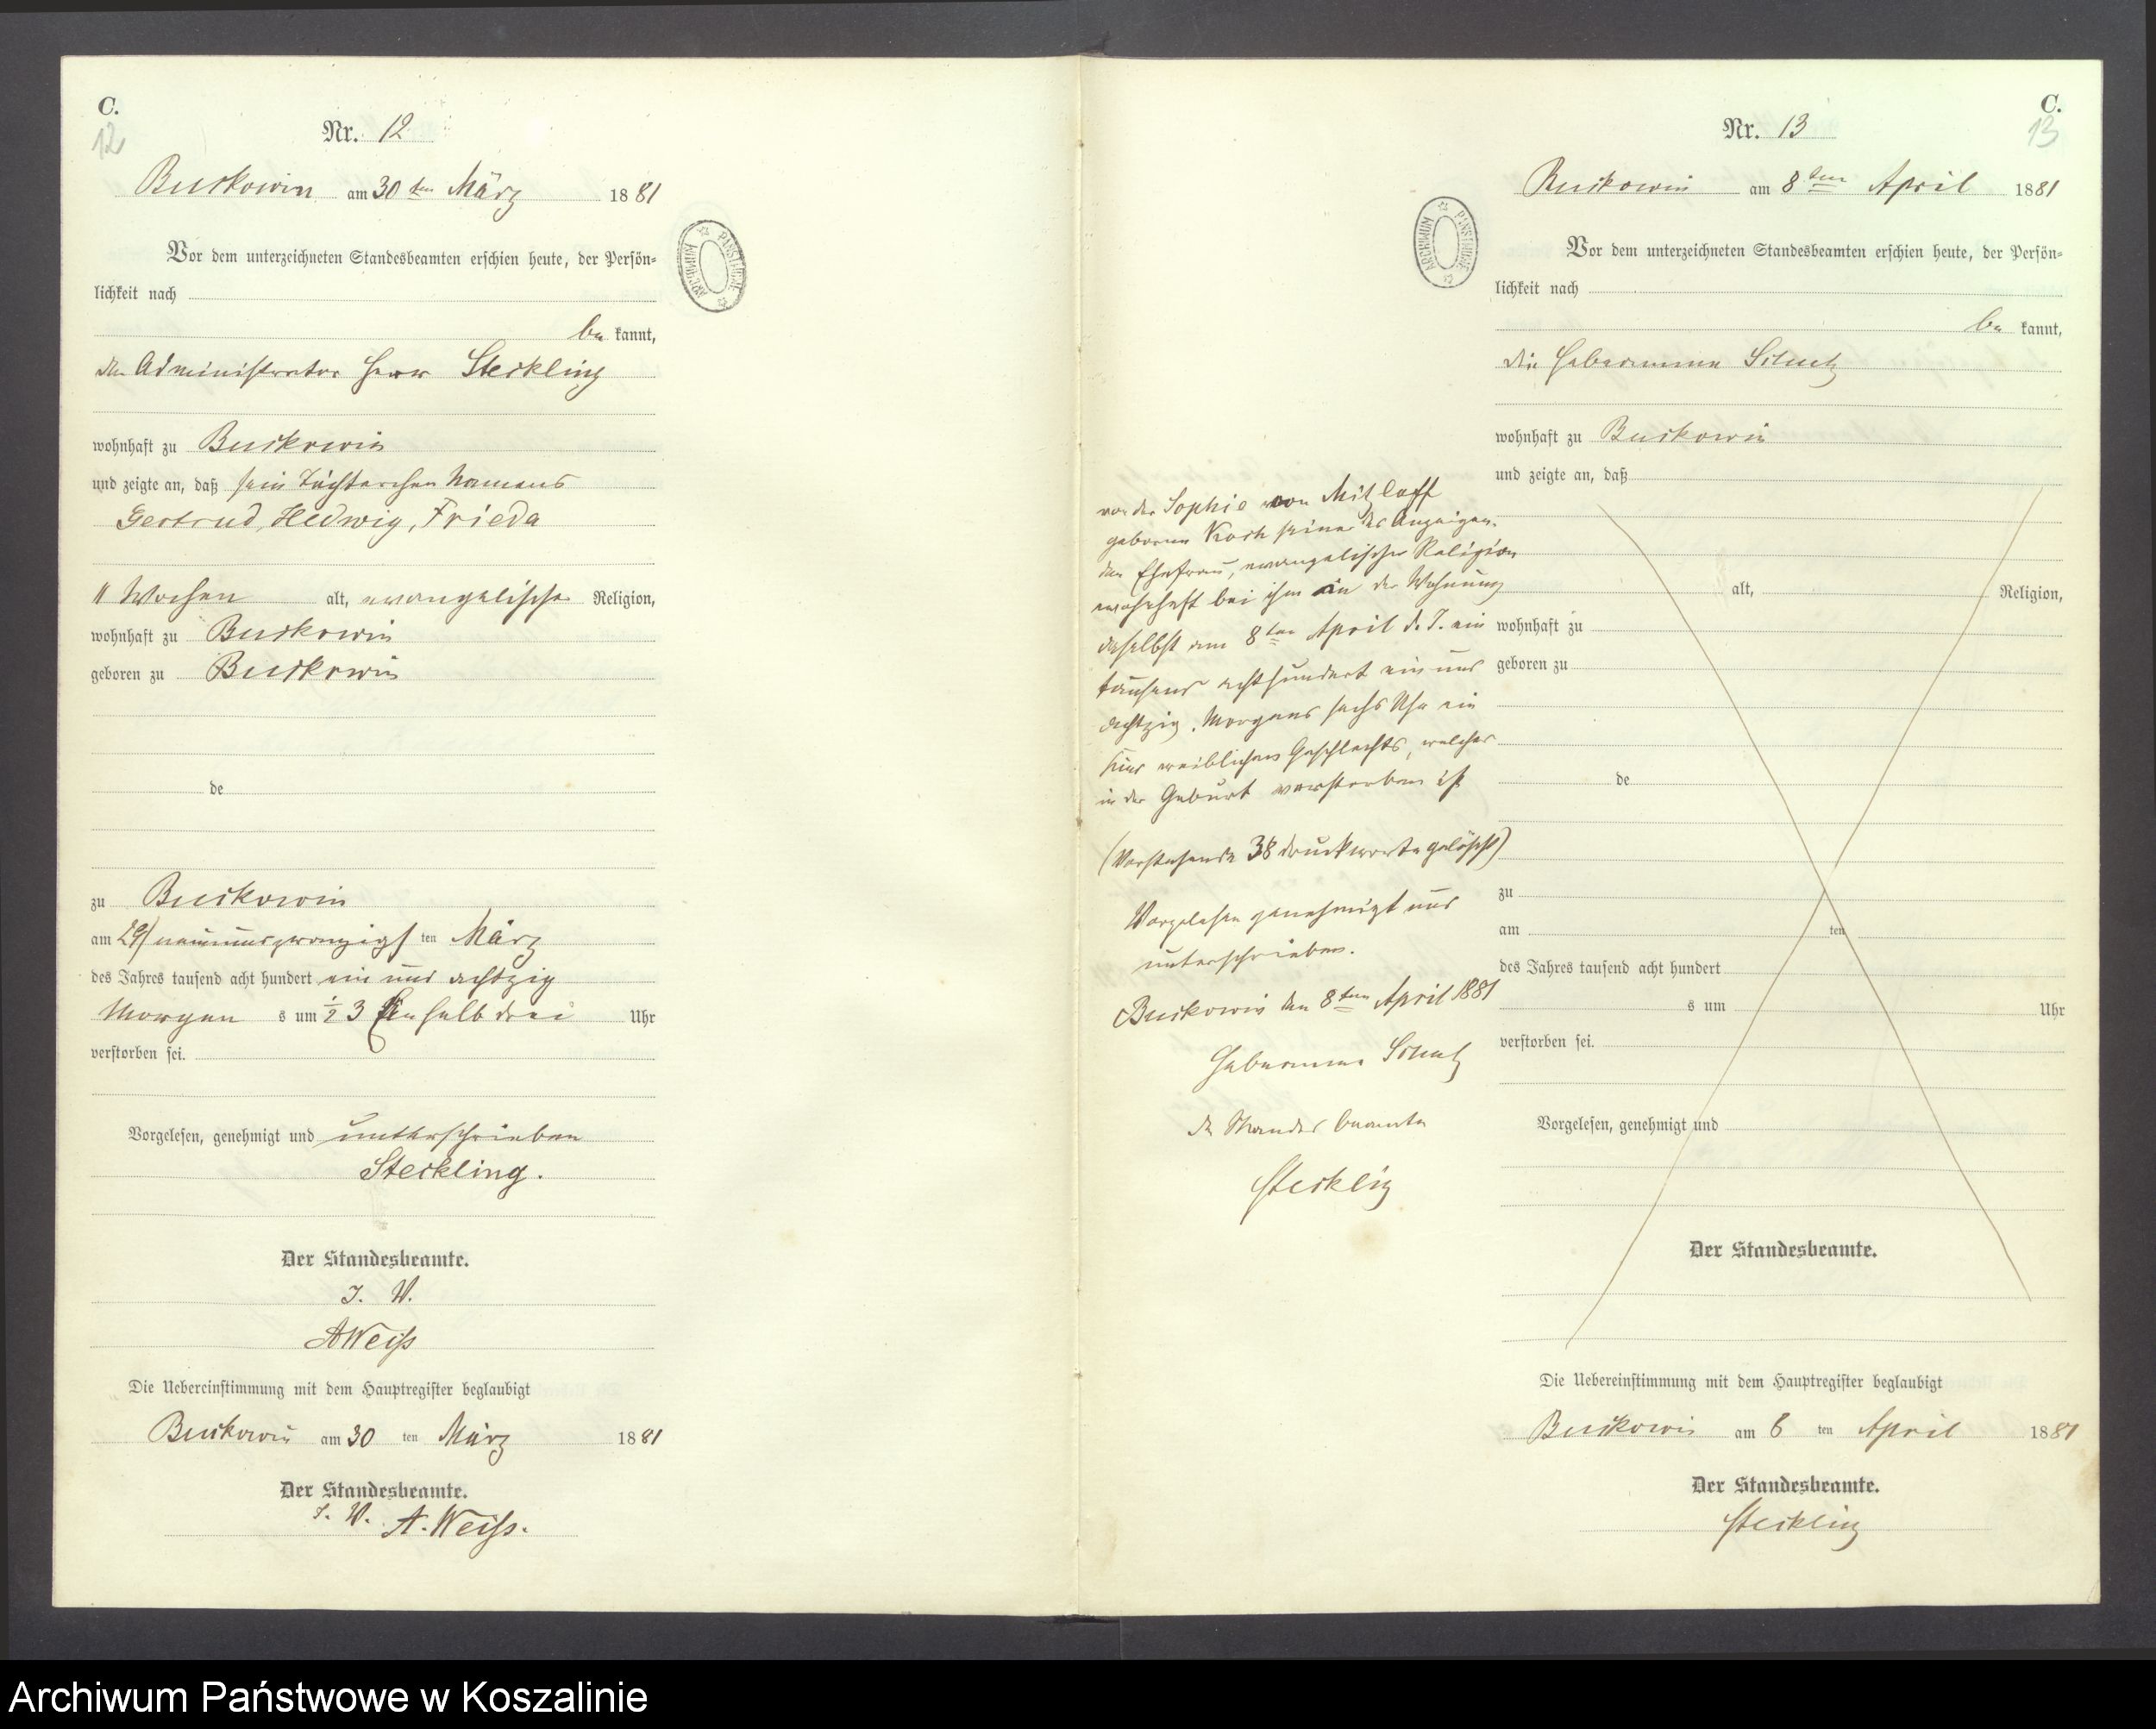 C.
12
Nr. 12
Buckowin am 30 ten März 1881
Vor dem unterzeichneten Standesbeamten erschien heute, der Persön-
lichkeit nach
be kannt,
der Administrator Herr Steckling
wohnhaft zu Buckowin
und zeigte an, daß sein Töchterchen Namens
Gertrud, Hedwig, Frieda
11 Wochen alt, evangelischer Religion,
wohnhaft zu Buckowin
geboren zu Buckowin
de
zu Buckowin
am 29/ neunundzwanzigs ten März
des Jahres tausend acht hundert ein und achtzig
Morgen s um ½ 3 halb drei Uhr
verstorben sei.
Vorgelesen, genehmigt und unterschrieben
Steckling.
Der Standesbeamte.
I. V.
AWeiß
Die Uebereinstimmung mit dem Hauptregister beglaubigt
Buckowin am 30 ten März 1881
Der Standesbeamte.
I. V. A. Weiß.
ARCHIWUM PAŃSTWOWE
C.
13
Nr. 13
Buckowin am 8 ten April 1881
Vor dem unterzeichneten Standesbeamten erschien heute, der Persön-
lichkeit nach
be kannt,
die Hebeamme Schuck
wohnhaft zu Buckowin
und zeigte an, daß
alt, Religion,
wohnhaft zu
geboren zu
de
zu
am ten
des Jahres tausend acht hundert
s um Uhr
verstorben sei.
Vorgelesen, genehmigt und
Der Standesbeamte.
Die Uebereinstimmung mit dem Hauptregister beglaubigt
Buckowin am 8 ten April 1881
Der Standesbeamte.
Steckling
ARCHIWUM PAŃSTWOWE
von der Sophie von Mitzlaff
geboren Koch seiner des Anzeigen-
den Ehefrau, evangelischer Religion
wohnhaft bei ihm in der Wohnung
daselbst am 8 ten April d. J. ein
tausend achthundert ein und
achtzig. Morgens sechs Uhr ein
Kind weiblichen Geschlechts, welches
in der Geburt verstorben ist
(Vorstehende 38 druckworte gelöscht)
Vorgelesen genehmigt und
unterschrieben.
Buckowin den 8 ten April 1881
Hebeamme Schuck
der Standes beamte
Steckling
Archiwum Państwowe w Koszalinie